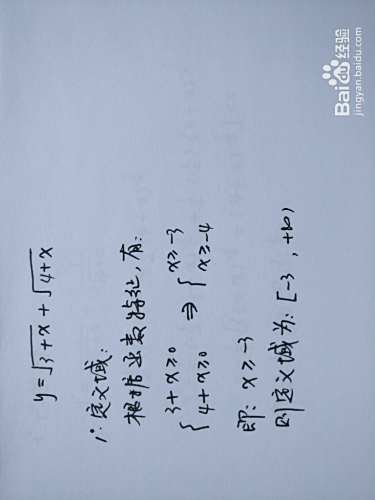 y=√3+x + √4+x
1∵定义域:
根据函数特征,有:
{3+x≥0 ⇒ {x≥-3
4+x≥0 x≥-4
即: x≥-3
则定义域为: [-3, +∞)
Baidu经验
jingyan.baidu.com